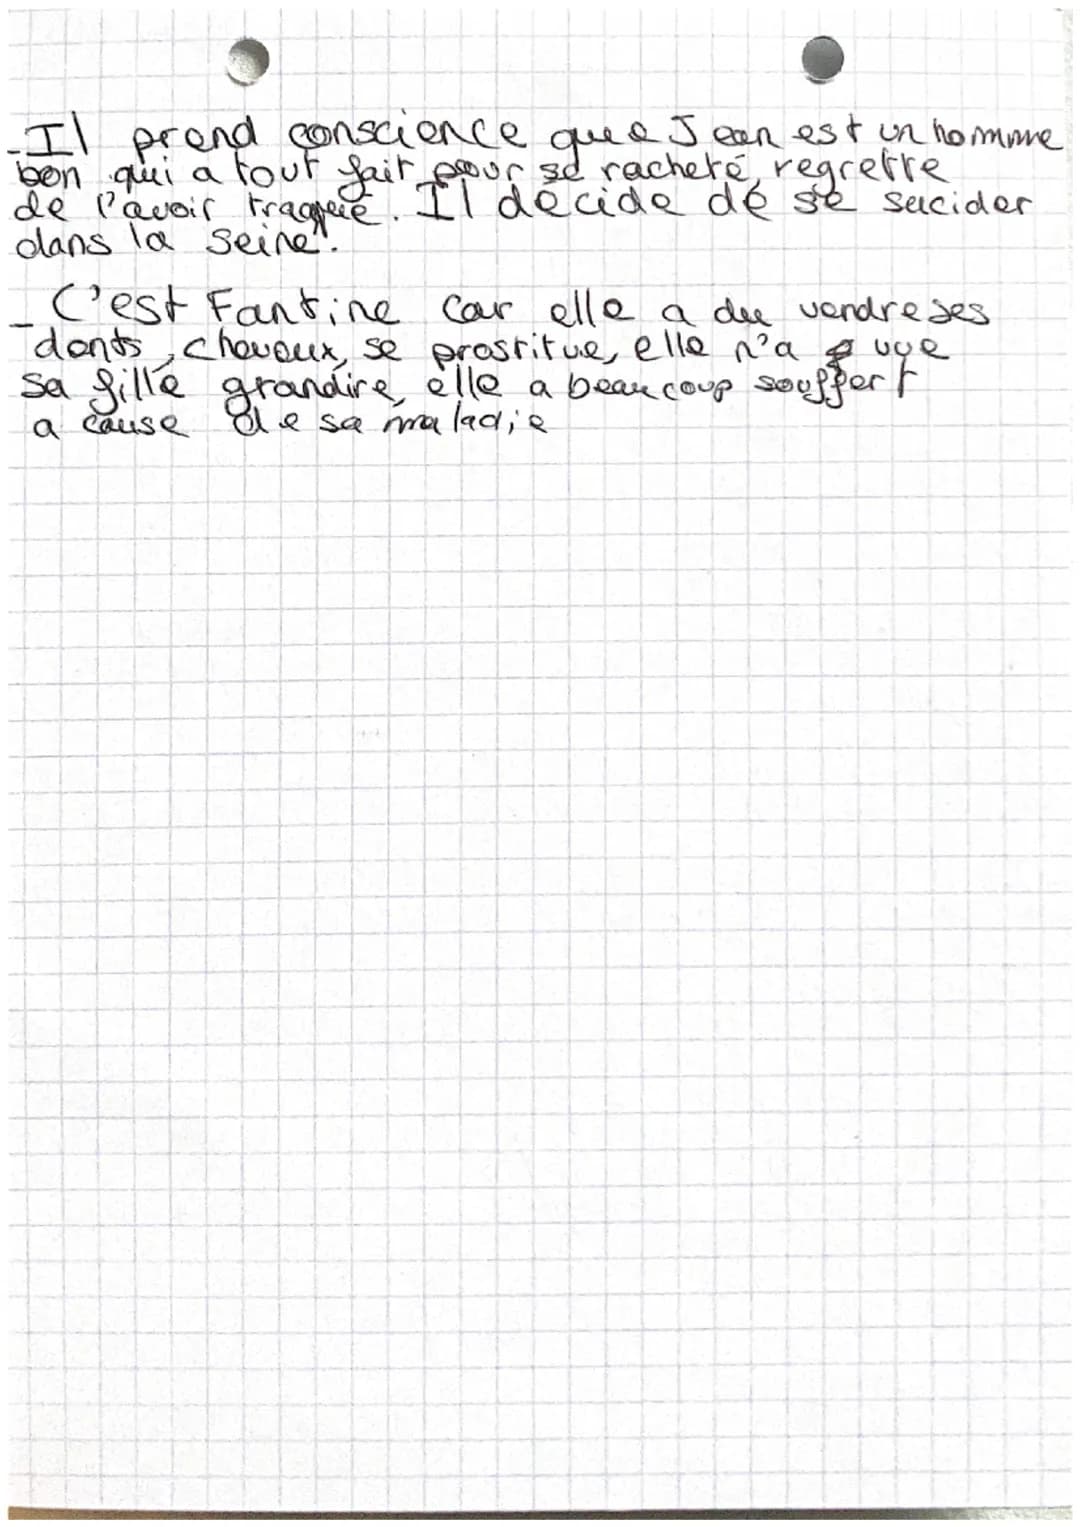 - Il prend conscience que Jean est un homme
bon qui a tout fait pour se racheté, regrette
de l'avoir traquée. Il décide de se sucider
dans la seine".
- C'est Fantine car elle a du vendre ses
dents, cheveux, se prostitue, elle n'a vue
sa fille grandire, elle a beaucoup souffert
a cause de sa maladie